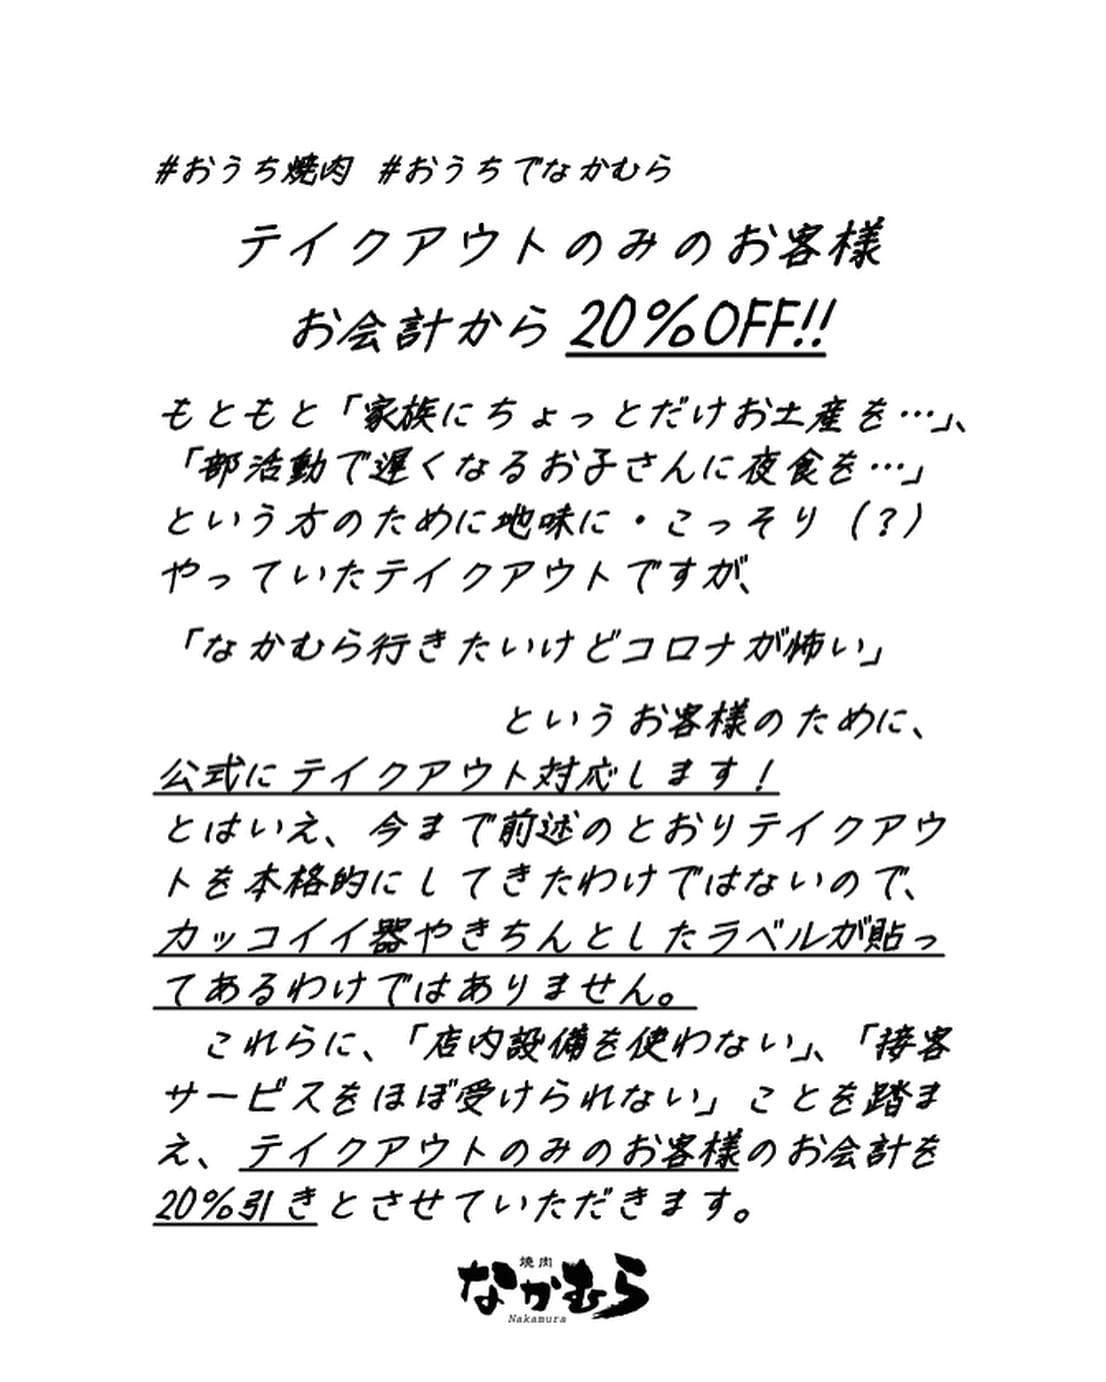 #おうち焼肉 #おうちでなかむら
テイクアウトのみのお客様
お会計から 20%OFF!!
もともと「家族にちょっとだけお土産を…」、
「部活動で遅くなるお子さんに夜食を…」
という方のために地味に・こっそり（？）
やっていたテイクアウトですが、
「なかむら行きたいけどコロナが怖い」
というお客様のために、
公式にテイクアウト対応します！
とはいえ、今まで前述のとおりテイクアウ
トを本格的にしてきたわけではないので、
カッコイイ器やきちんとしたラベルが貼っ
てあるわけではありません。
これらに、「店内設備を使わない」、「接客
サービスをほぼ受けられない」ことを踏ま
え、テイクアウトのみのお客様のお会計を
20%引きとさせていただきます。
焼肉
なかむら
Nakamura